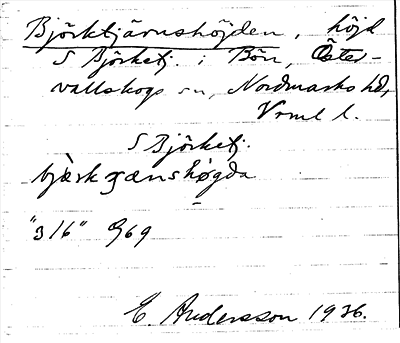 Björktjärnshöjden, höjd
S Björketj. i Bön, Öster-
vallskogs sn, Nordmarks hd,
Vrml l.
S Björketj.
bjærkʒænshøgda
"316" 969
E. Andersson 1936.